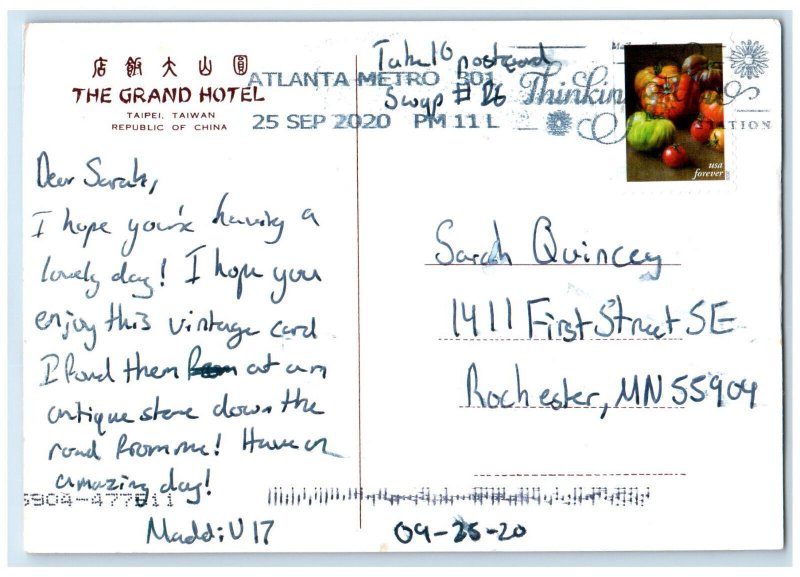 店飯大山圓
THE GRAND HOTEL
TAIPEI, TAIWAN
REPUBLIC OF CHINA
ATLANTA METRO 301
25 SEP 2020 PM 11 L
postcard
Swap # 26
Thinking
STATION
usa
forever
Dear Sarah,
I hope you're having a
lovely day! I hope you
enjoy this vintage card
I found them at an
antique store down the
road from me! Have an
amazing day!
Maddi U 17
Sarah Quincey
1411 First Street SE
Rochester, MN 55904
5904-477811
09-25-20